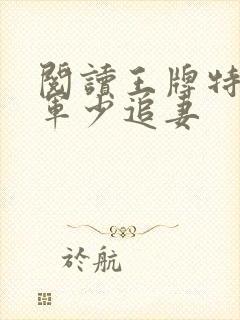 閱讀王牌特
軍少追妻
於航